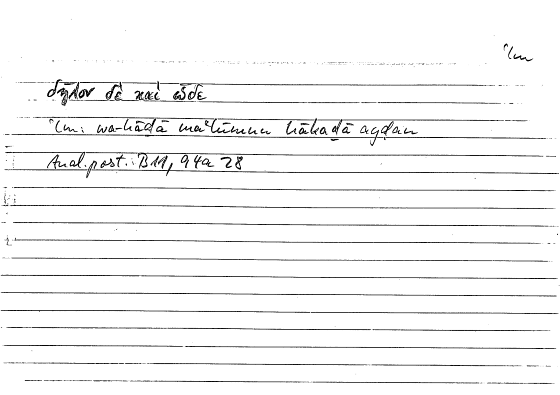 ʿlm
δῆλον δὲ καὶ ὧδε
ʿlm: wa-hāḏā maʿlūmun hākaḏā ayḍan
Anal. post.: B11, 94a 28